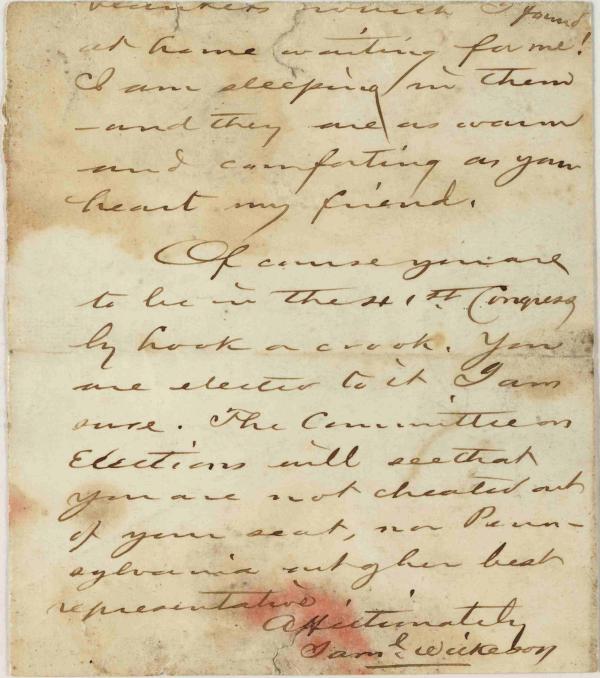 blankets which I found
at home waiting for me!
I am sleeping in them
- and they are as warm
and comforting as your
heart my friend.
Of course you are
to be in the 41st. Congress
by hook or crook. You
are elected to it I am
sure. The Committee on
Elections will see that
you are not cheated out
of your seat, nor Penn-
sylvania out of her best
representative
Affectionately
Saml. Wilkeson